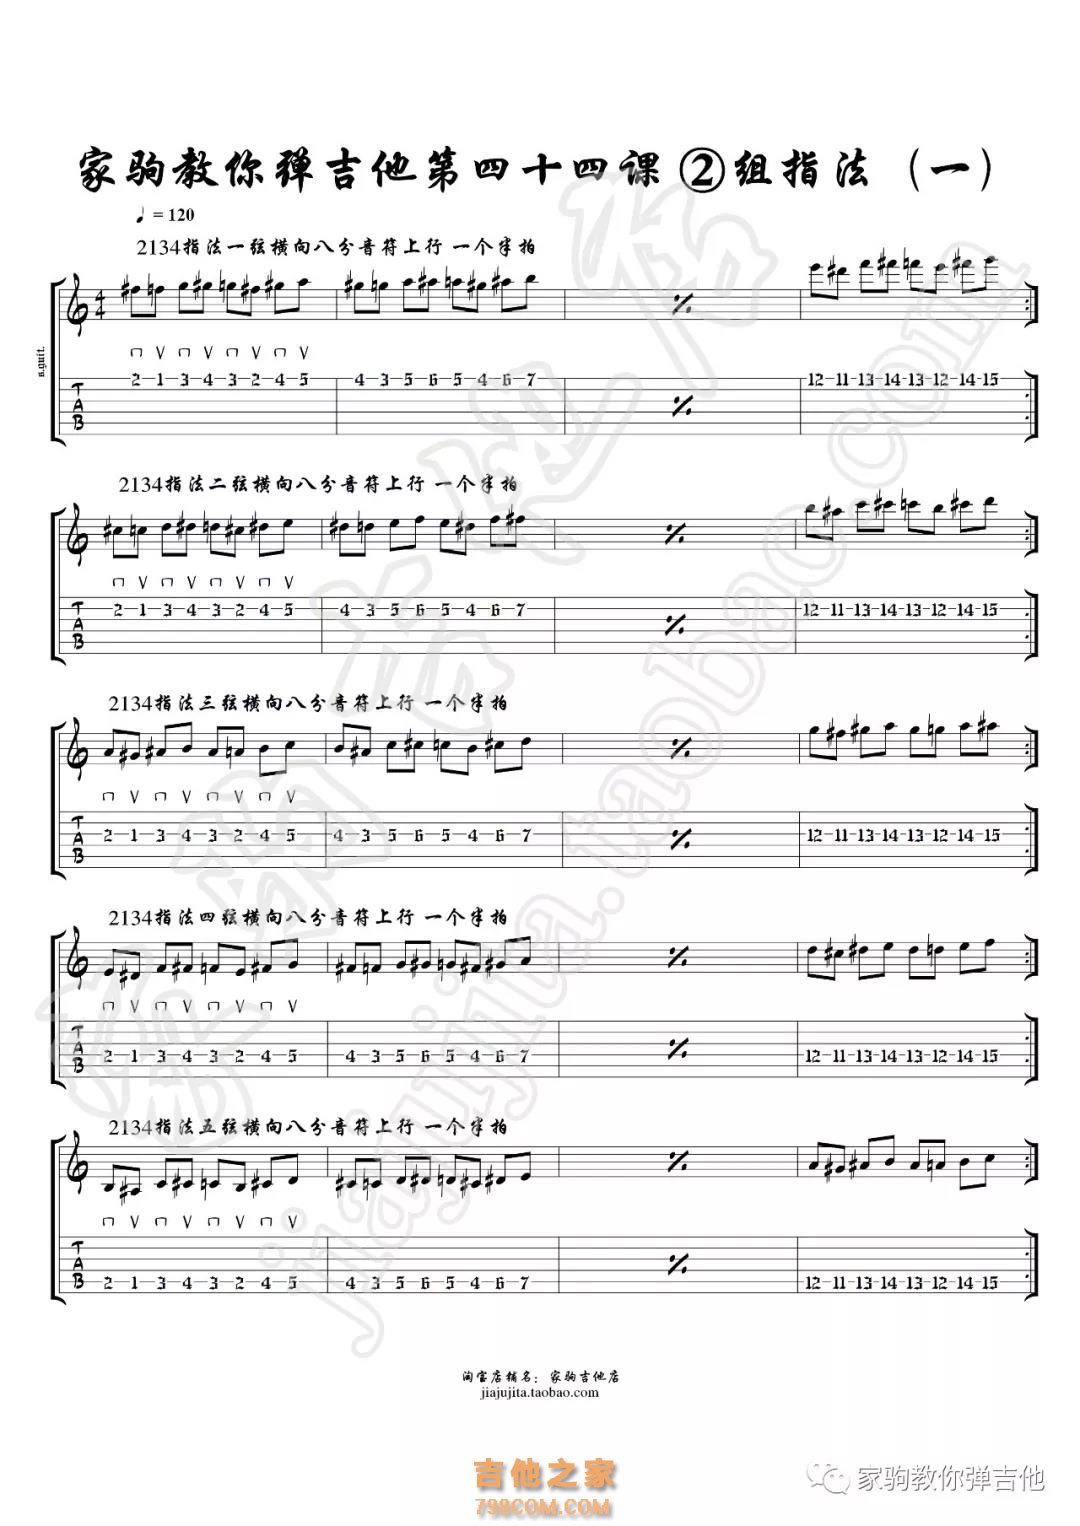 家驹教你弹吉他第四十四课 ②组指法（一）
♩= 120
2134指法一弦横向八分音符上行 一个半拍
s.guit.
4
4
T
A
B
2 1 3 4 3 2 4 5 4 3 5 6 5 4 6 7 12 11 13 14 13 12 14 15
2134指法二弦横向八分音符上行 一个半拍
T
A
B
2 1 3 4 3 2 4 5 4 3 5 6 5 4 6 7 12 11 13 14 13 12 14 15
2134指法三弦横向八分音符上行 一个半拍
T
A
B
2 1 3 4 3 2 4 5 4 3 5 6 5 4 6 7 12 11 13 14 13 12 14 15
2134指法四弦横向八分音符上行 一个半拍
T
A
B
2 1 3 4 3 2 4 5 4 3 5 6 5 4 6 7 12 11 13 14 13 12 14 15
2134指法五弦横向八分音符上行 一个半拍
T
A
B
2 1 3 4 3 2 4 5 4 3 5 6 5 4 6 7 12 11 13 14 13 12 14 15
jiajujita.taobao.com
淘宝店铺名：家驹吉他店
jiajujita.taobao.com
吉他之家
798COM.COM
家驹教你弹吉他